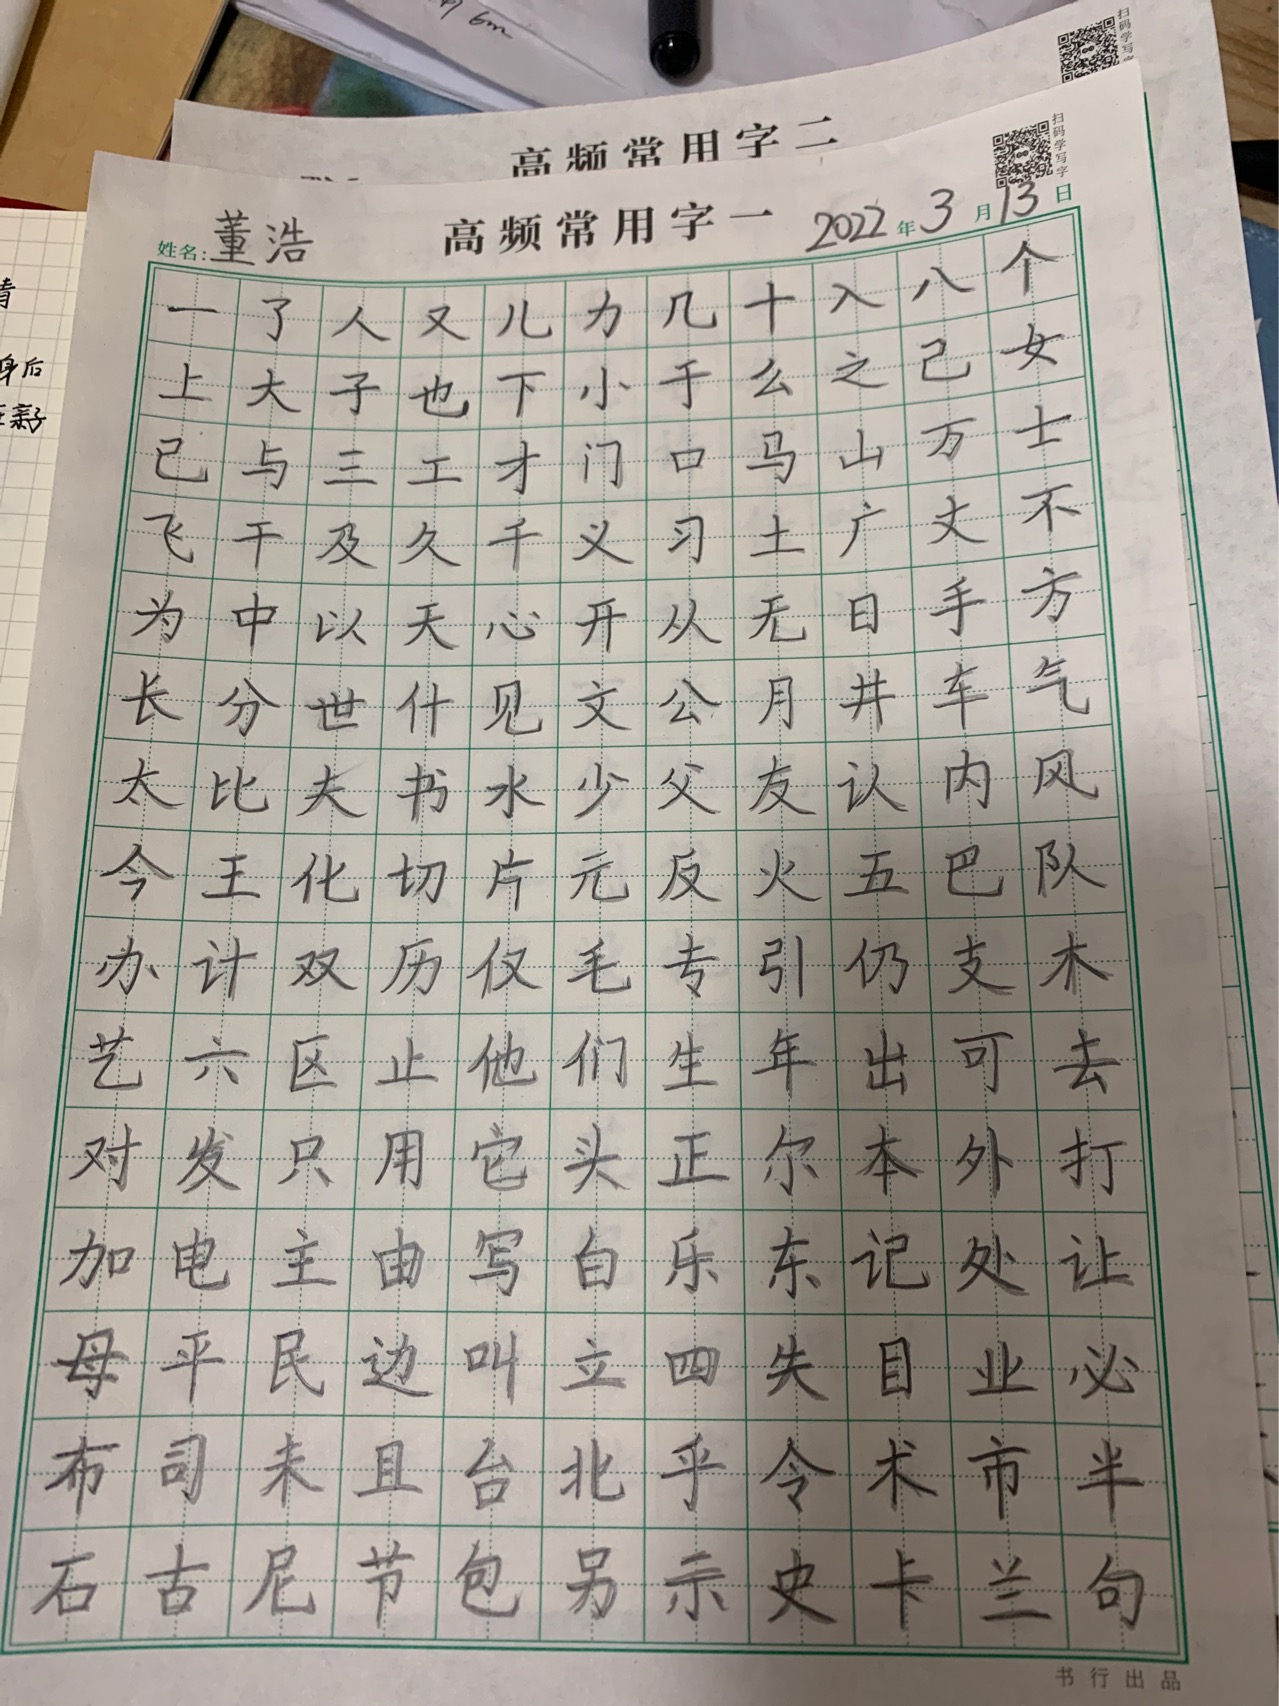 6m
扫码学写字
高频常用字二
扫码学写字
姓名: 董浩 高频常用字一 2022年3月13日
一了人又儿力几十入八个
上大子也下小于么之己女
已与三工才门口马山万士
飞干及久千义习土广丈不
为中以天心开从无日手方
长分世什见文公月井车气
太比夫书水少父友认内风
今王化切片元反火五巴队
办计双历仅毛专引仍支木
艺六区止他们生年出可去
对发只用它头正尔本外打
加电主由写白乐东记处让
母平民边叫立四失目业必
布司未且台北乎令术市半
石古尼节包另示史卡兰句
书行出品
身后